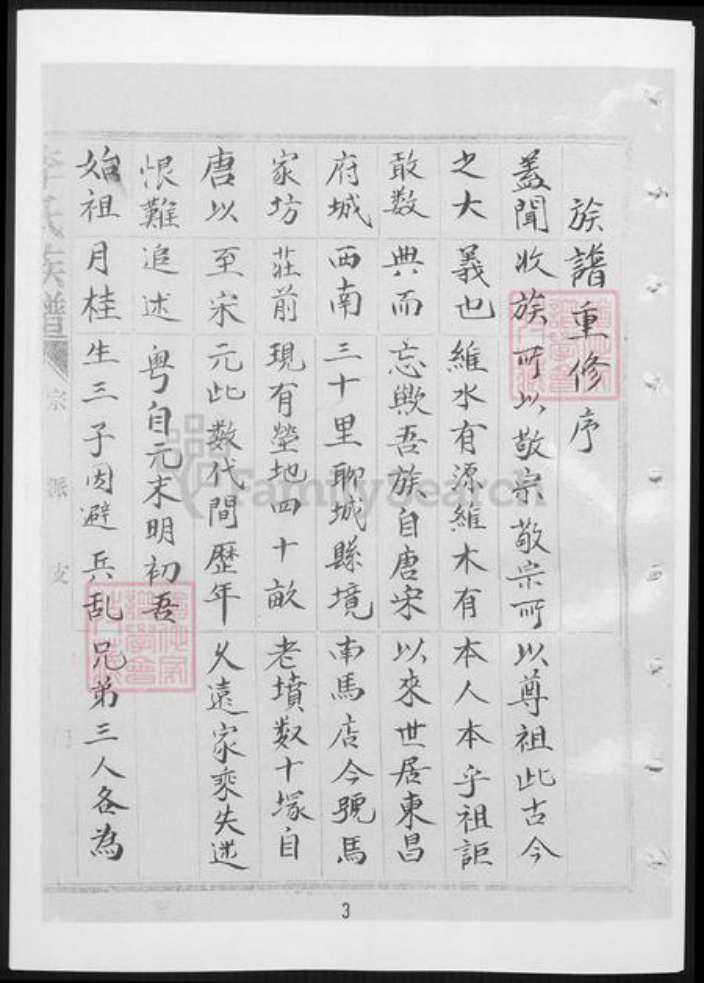 族譜重修序
蓋聞收族所以敬宗敬宗所以尊祖此古今
之大義也維水有源維木有本人本乎祖詎
敢数典而忘歟吾族自唐宋以來世居東昌
府城西南三十里聊城縣境南馬店今號馬
家坊莊前現有塋地四十畝老墳数十塚自
唐以至宋元此数代間歷年久遠家乘失迷
恨難追述粤自元末明初吾
始祖月桂生三子因避兵乱兄弟三人各為
氏族譜
宗派支
FamilySearch
3